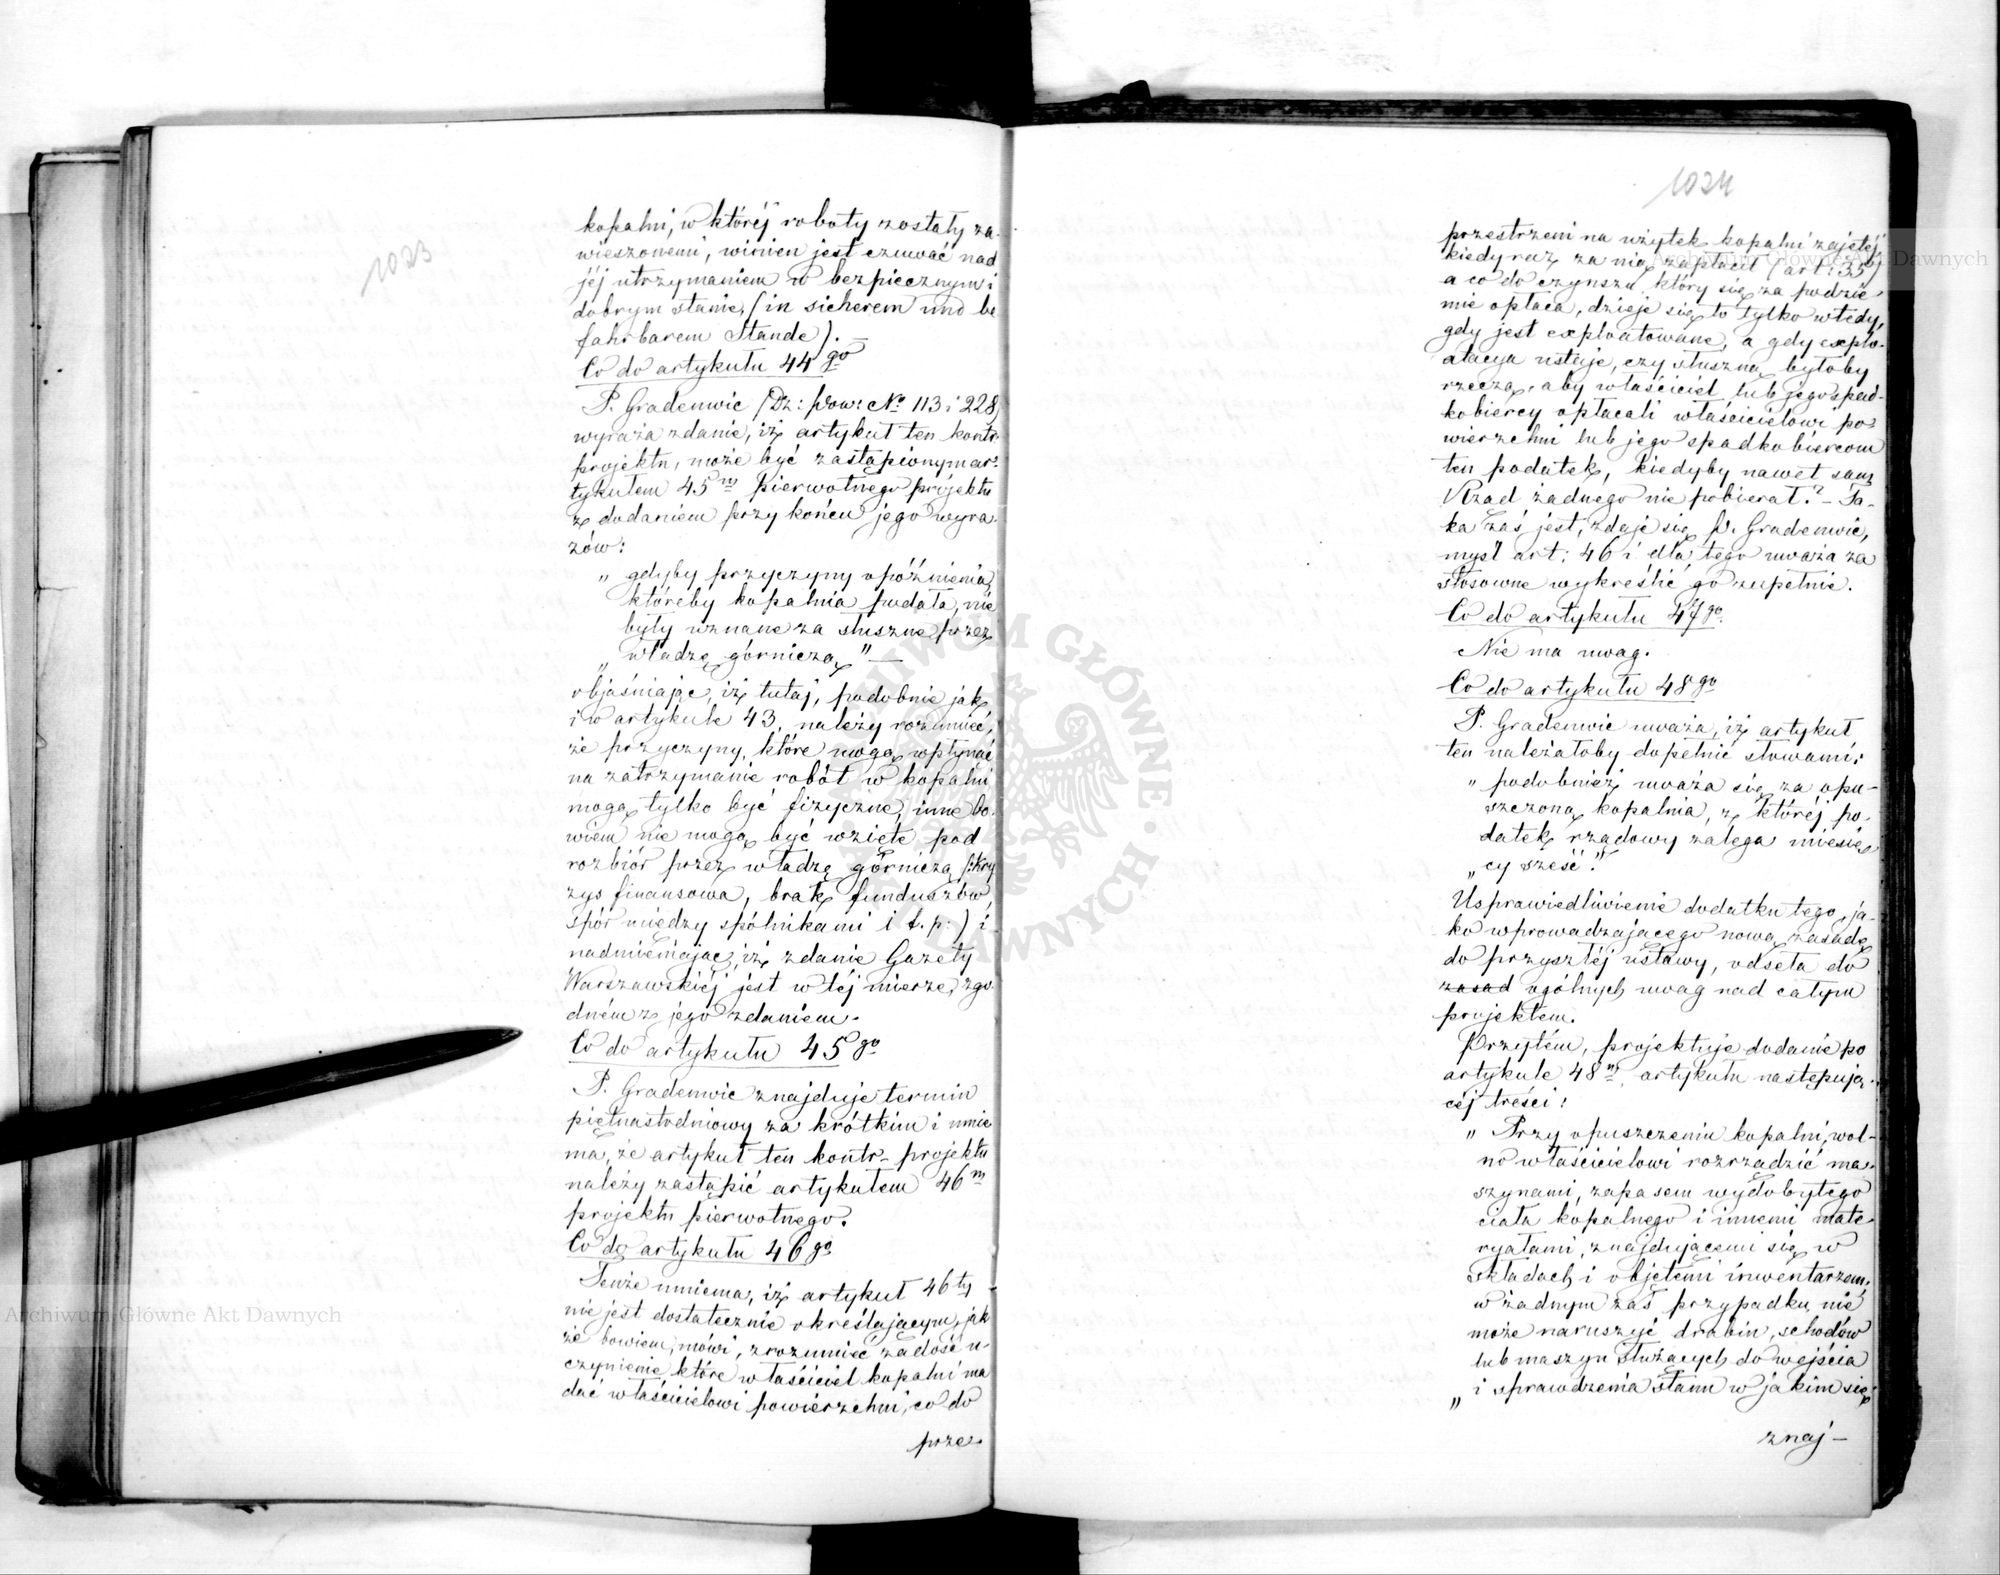 1023
kopalni, w której roboty zostały za-
wieszonemi, winien jest czuwać nad
jéj utrzymaniem w bezpiecznym i
dobrym stanie, (in sicherem und be
fahrbarem Stande). –
Co do artykułu 44go
P. Gradenwic (Dz: pow: No 113 i 228,
wyraża zdanie, iż artykuł ten kontr-
projektu, może być zastąpionym ar-
tykułem 45m pierwotnego projektu
z dodaniem przy końcu jego wyra-
zów:
„ gdyby przyczyny opóźnienia,
któreby kopalnia podała, nie
były uznane za słuszne, przez
„ władzę górniczą " —
objaśniając, iż tutaj, podobnie jak
i w artykule 43, należy rozumieć,
że przyczyny, które mogą wpłynąć
na zatrzymanie robót w kopalni
mogą tylko być fizyczne, inne bo-
wiem nie mogą być wzięte pod
rozbiór przez władzę górniczą (:kry
zys finansowa, brak funduszów,
spór między spólnikami i t. p:) i
nadmieniając, iż zdanie Gazety
Warszawskiéj jest w téj mierze, zgo-
dném z jego zdaniem.
Co do artykułu 45go
P. Gradenwic znajduje termin
piętnastodniowy za krótkim i mnie
ma, że artykuł ten kontr-projektu
należy zastąpić artykułem 46m
projektu pierwotnego.
Co do artykułu 46go
Tenże mniema, iż artykuł 46ty
nie jest dostatecznie określającym, jak
że bowiem, mówi, zrozumieć zadość u-
czynienie które właściciel kopalni ma
dać właścicielowi powierzchni, co do
prze-
1024
przestrzeni na użytek kopalni zajętéj
kiedy raz za nią zapłacił (art: 35)
a co do czynszu, który się za podzie-
mie opłaca, dzieje się to tylko wtedy,
gdy jest exploatowane, a gdy explo-
atacya ustaje, czy słuszną byłoby
rzeczą, aby właściciel lub jego spad-
kobiercy opłacali właścicielowi po-
wierzchni lub jego spadkobiercom
ten podatek, kiedyby nawet sam
Rząd żadnego nie pobierał? – Ta-
ka zaś jest, zdaje się P. Gradenwic,
myśl art: 46 i dla tego uważa za
stosowne wykreślić go zupełnie.
Co do artykułu 47go.
Nie ma uwag.
Co do artykułu 48go
P. Gradenwic uważa, iż artykuł
ten należałoby dopełnić słowami:
„ podobnież uważa się za opu-
szczoną kopalnia, z któréj po-
datek rządowy zalega miesię
„ cy sześć."
Usprawiedliwienie dodatku tego, ja-
ko wprowadzającego nową zasadę
do przyszłéj ustawy, odseła do
zasad ogólnych uwag nad całym
projektem.
Przytém, projektuje dodanie po
artykule 48m artykułu następują-
céj treści:
„ Przy opuszczeniu kopalni, wol-
no właścicielowi rozrządzić ma-
szynami, zapasem wydobytego
ciała kopalnego i innemi mate-
ryałami, znajdującemi się w
składach i objętemi inwentarzem,
w żadnym zaś przypadku nie
może naruszyć drabin, schodów
lub maszyn służących do wejścia
„ i sprawdzenia stanu w jakim się
znaj–
Archiwum Główne Akt Dawnych
Archiwum Główne Akt Dawnych
ARCHIWUM GŁÓWNE AKT DAWNYCH